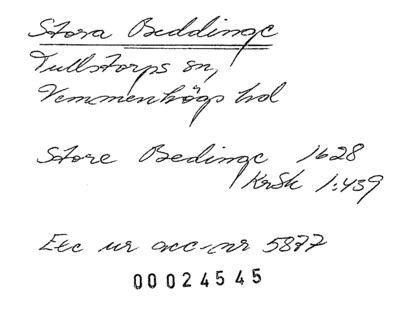 Stora Beddinge
Tullstorps sn,
Vemmenhögs hd
Store Bedinge 1628
KrSk 1:459
Exc ur acc-nr 5877
00024545